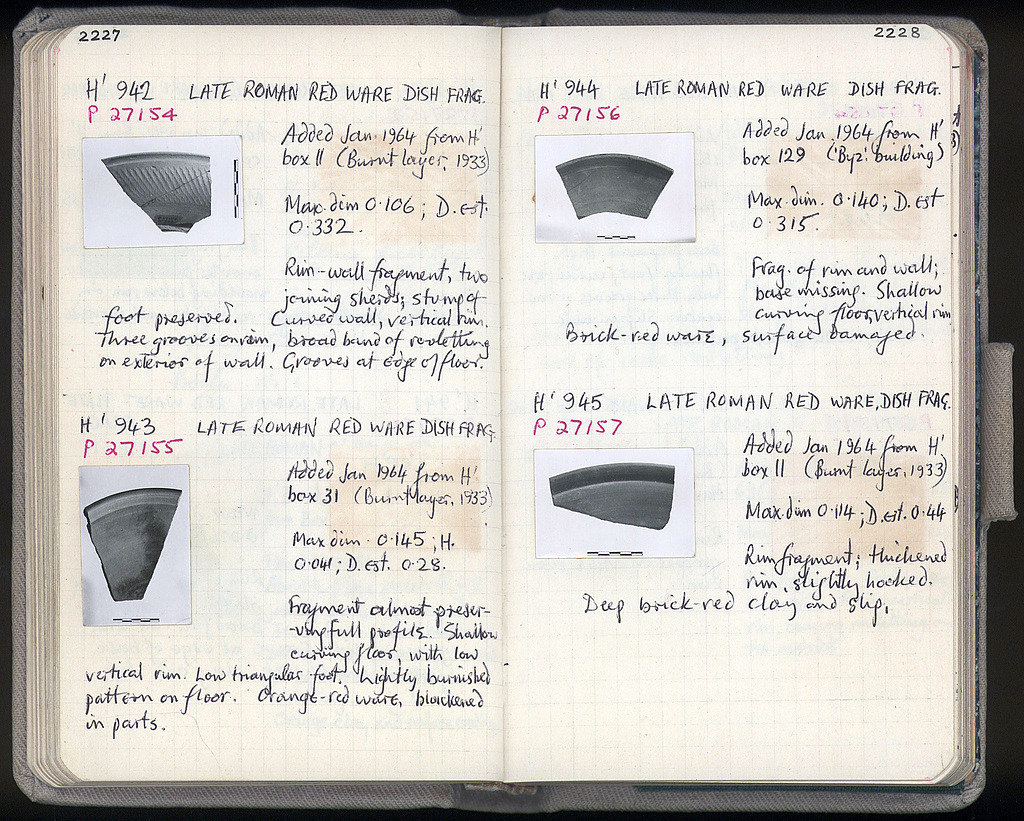 2227
H' 942 LATE ROMAN RED WARE DISH FRAG.
P 27154
Added Jan. 1964 from H'
box 11 (Burnt layer, 1933)
Max. dim 0.106; D. est.
0.332.
Rim-wall fragment, two
joining sherds; stump of
foot preserved. Curved wall, vertical rim.
Three grooves on rim, broad band of rouletting
on exterior of wall. Grooves at edge of floor.
H' 943 LATE ROMAN RED WARE DISH FRAG.
P 27155
Added Jan 1964 from H'
box 31 (Burnt layer, 1933)
Max dim. 0.145; H.
0.041; D. est. 0.28.
Fragment almost preser-
-ving full profile. Shallow
curving floor, with low
vertical rim. Low triangular foot. Lightly burnished
pattern on floor. Orange-red ware, blackened
in parts.
2228
H' 944 LATE ROMAN RED WARE DISH FRAG.
P 27156
Added Jan 1964 from H'
box 129 ('Byz.' building)
Max dim. 0.140; D. est
0.315.
Frag. of rim and wall;
base missing. Shallow
curving floor, vertical rim
Brick-red ware, surface damaged.
H' 945 LATE ROMAN RED WARE, DISH FRAG.
P 27157
Added Jan 1964 from H'
box 11 (Burnt layer, 1933)
Max. dim 0.114; D. est. 0.44
Rim fragment; thickened
rim, slightly hooked.
Deep brick-red clay and slip.